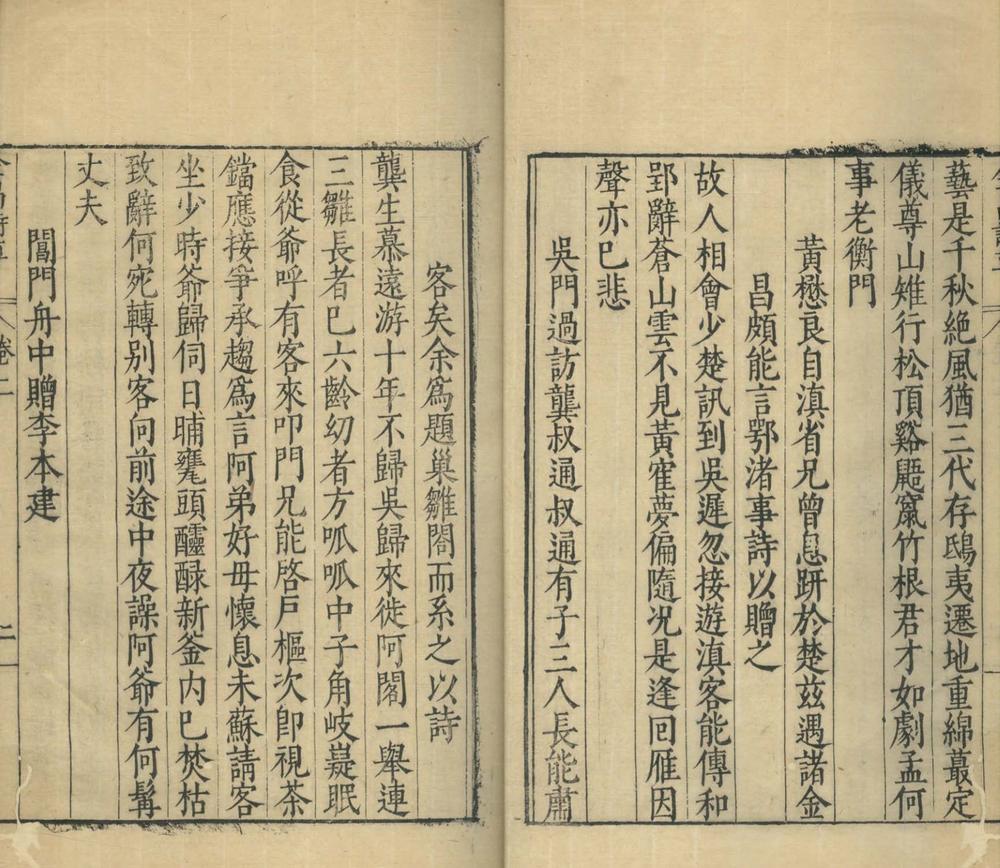 藝是千秋絶風猶三代存鴟夷遷地重綿蕞定
儀尊山雉行松頂谿鼯窠竹根君才如劇孟何
事老衡門
黃懋良自滇省兄曾息趼於楚兹遇諸金
昌頗能言鄂渚事詩以贈之
故人相會少楚訊到吳遲忽接遊滇客能傳和
郢辭蒼山雲不見黃寉夢偏隨况是逢回雁因
聲亦巳悲
吳門過訪龔叔通叔通有子三人長能肅
客矣余爲題巢雛閣而系之以詩
龔生慕遠游十年不歸吳歸來徙阿閣一舉連
三雛長者巳六齡幼者方呱呱中子角岐嶷眠
食從爺呼有客來叩門兄能啓戶樞次卽視茶
鐺應接爭承趨爲言阿弟好母懷息未蘇請客
坐少時爺歸伺日晡甕頭醽醁新釜内巳焚枯
致辭何宛轉别客向前途中夜譟阿爺有何髯
丈夫
閶門舟中贈李本建
卷二